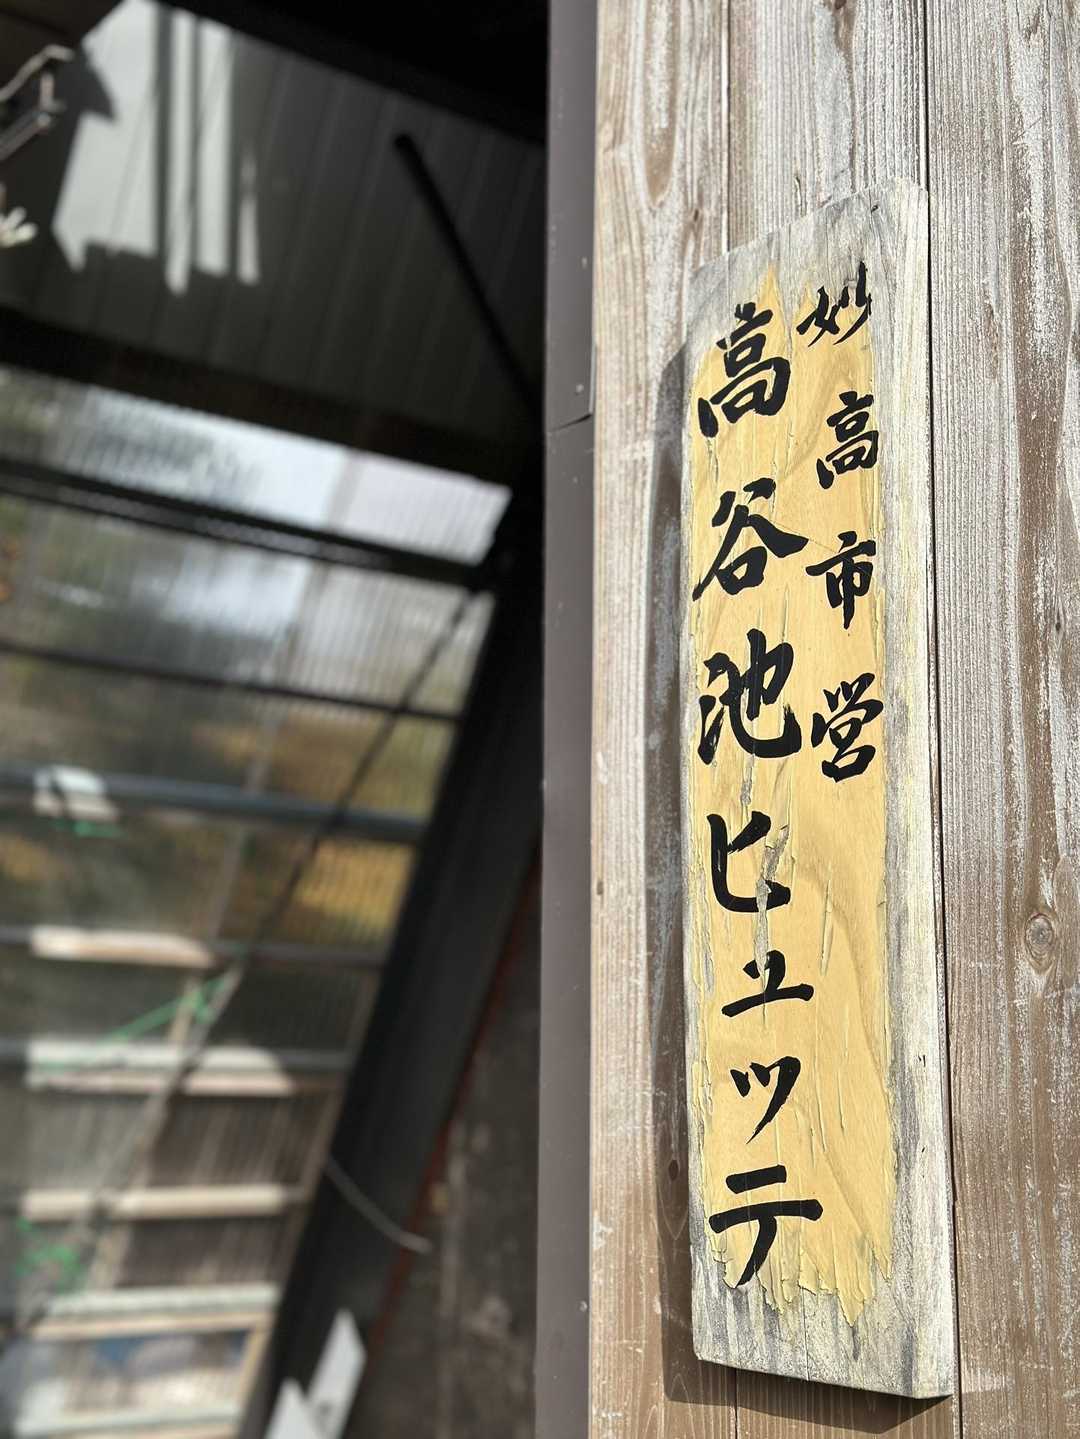 妙高市営
高谷池ヒュッテ